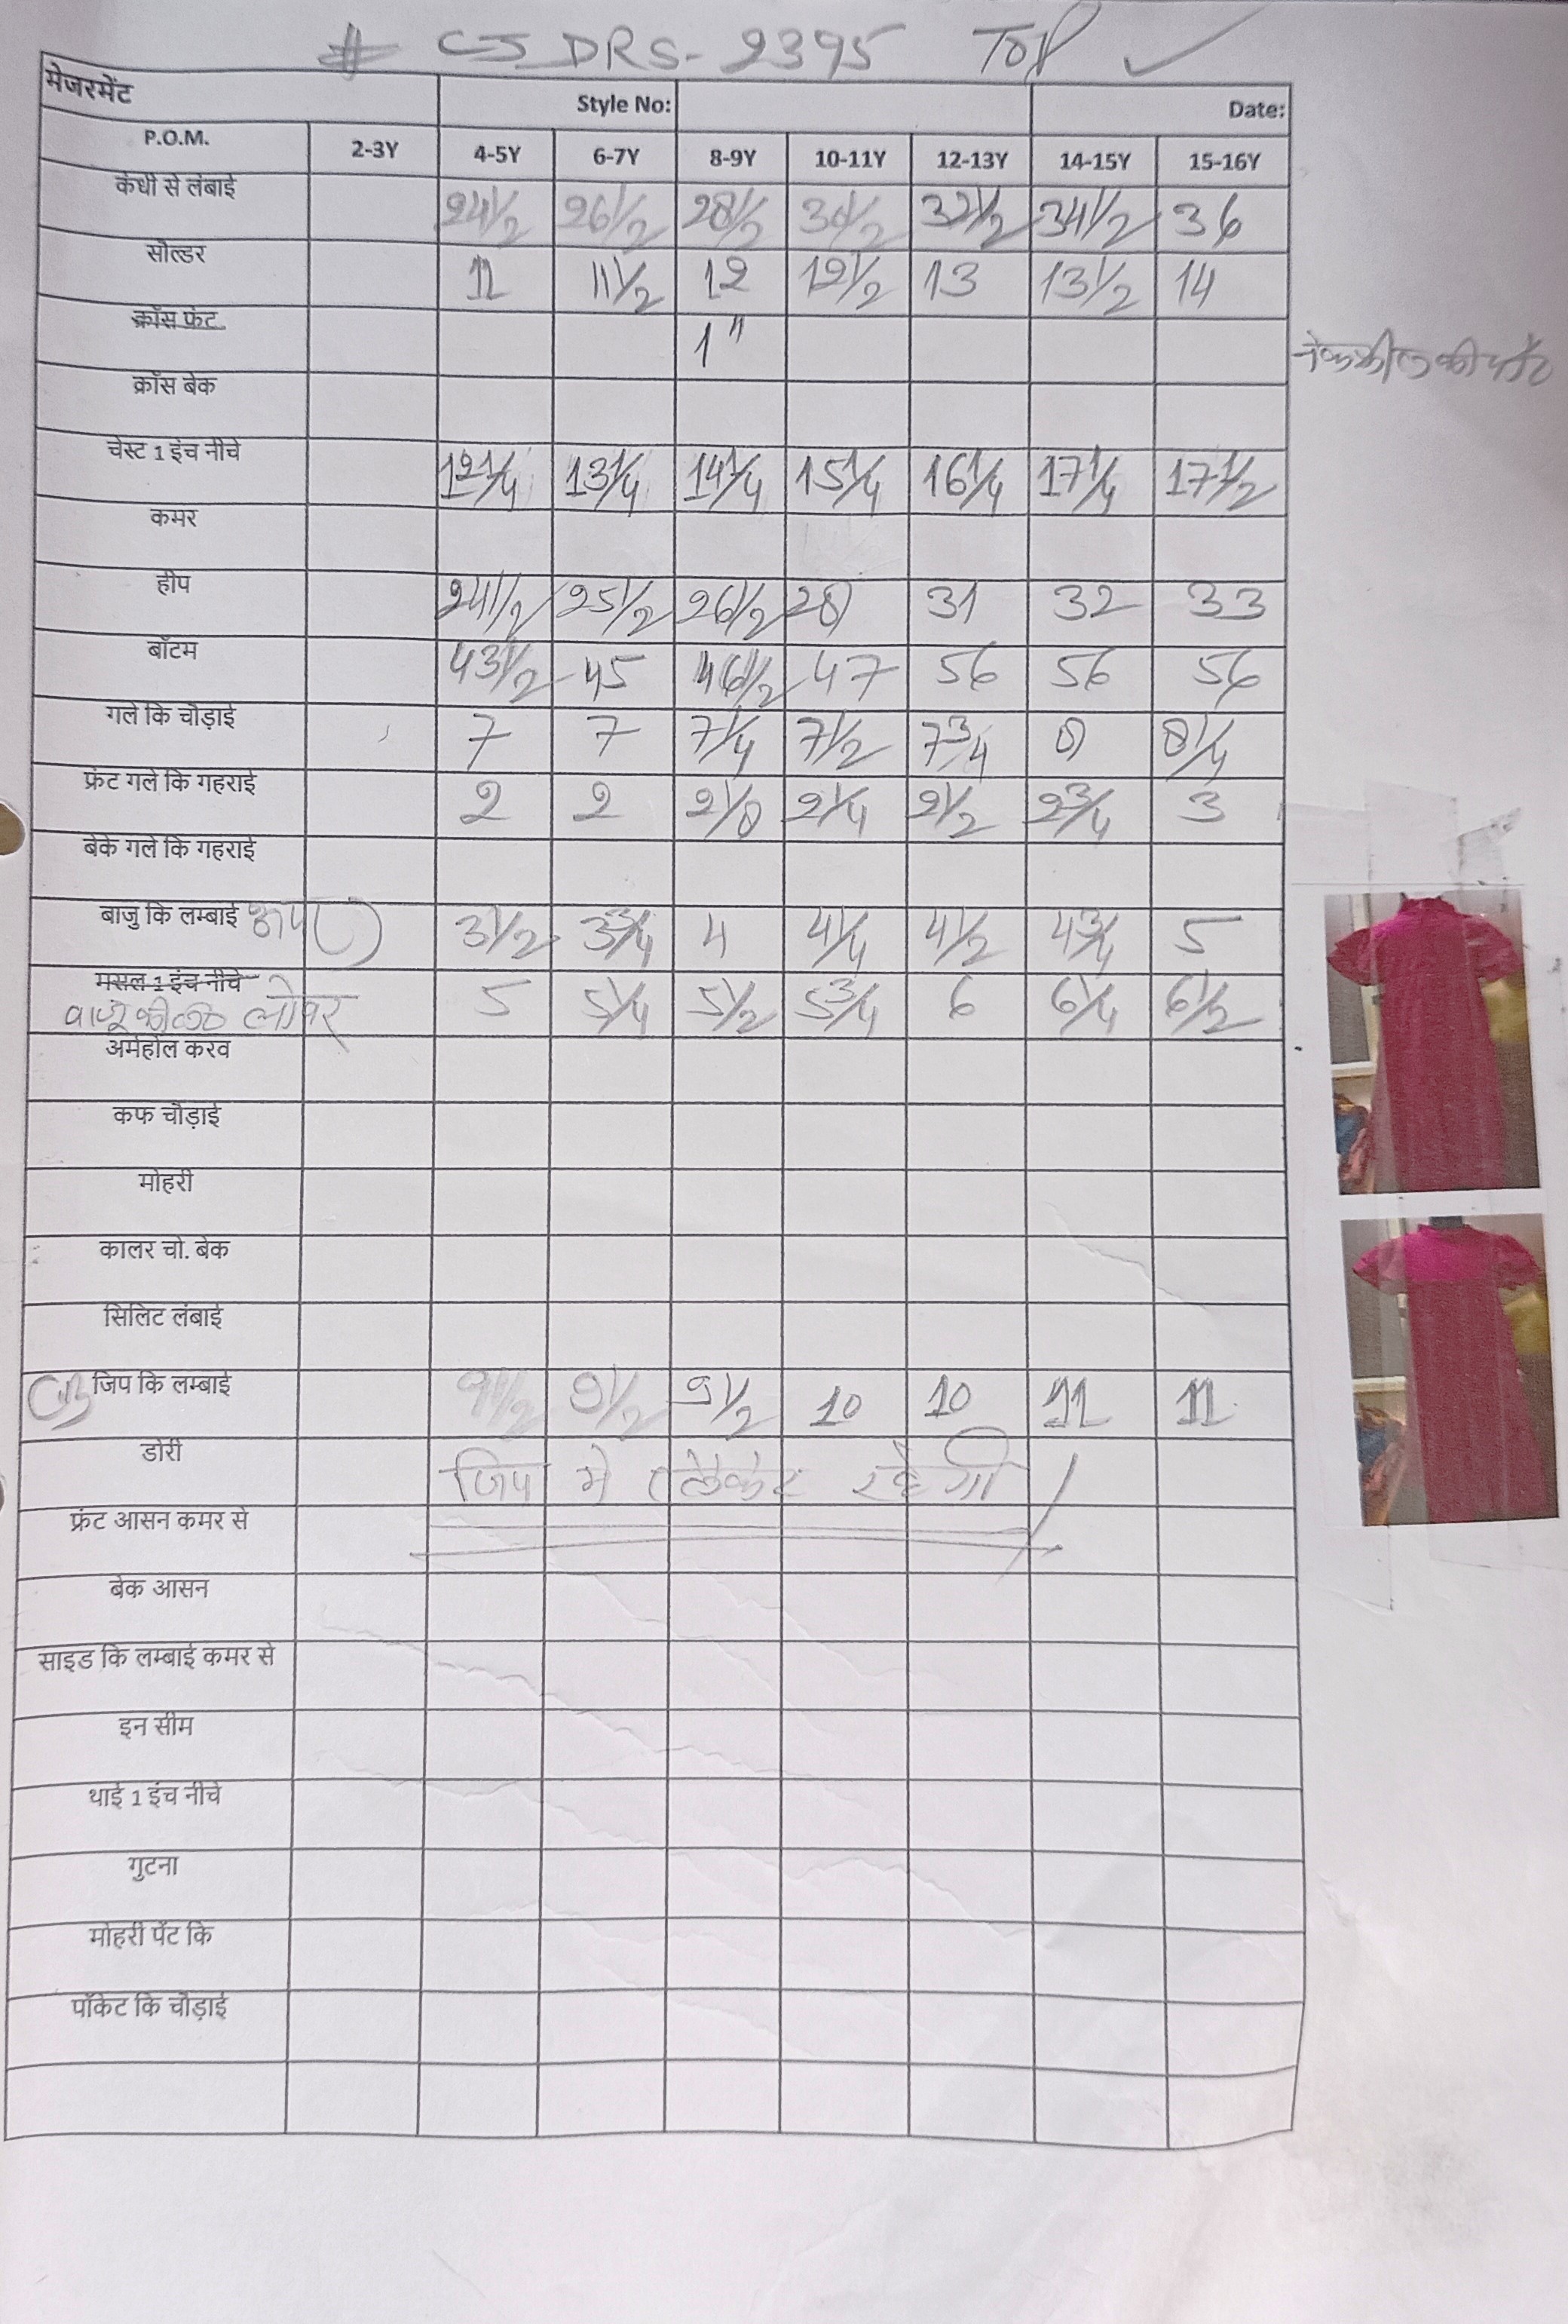 # CS DRS-2395 TOP ✓
मेजरमेंट Style No: Date:
P.O.M. 2-3Y 4-5Y 6-7Y 8-9Y 10-11Y 12-13Y 14-15Y 15-16Y
कंधी से लंबाई 24 1/2 26 1/2 28 1/2 30 1/2 32 1/2 34 1/2 36
सोल्डर 11 11 1/2 12 12 1/2 13 13 1/2 14
क्रॉस फ्रंट 1"
क्रॉस बेक
चेस्ट 1 इंच नीचे 12 1/4 13 1/4 14 1/4 15 1/4 16 1/4 17 1/4 17 1/2
कमर
हीप 24 1/2 25 1/2 26 1/2 28 31 32 33
बॉटम 43 1/2 45 46 1/2 47 56 56 56
गले कि चौड़ाई 7 7 7 1/4 7 1/2 7 3/4 8 8 1/4
फ्रंट गले कि गहराई 2 2 2 1/8 2 1/4 2 1/2 2 3/4 3
बेके गले कि गहराई
बाजु कि लम्बाई 3 1/2 3 3/4 4 4 1/4 4 1/2 4 3/4 5
मसल 1 इंच नीचे 5 5 1/4 5 1/2 5 3/4 6 6 1/4 6 1/2
लोवर
अर्महोल करव
कफ चौड़ाई
मोहरी
कालर चो. बेक
सिलिट लंबाई
जिप कि लम्बाई 9 1/2 9 1/2 9 1/2 10 10 11 11
डोरी जिप मे रहेगी
फ्रंट आसन कमर से
बेक आसन
साइड कि लम्बाई कमर से
इन सीम
थाई 1 इंच नीचे
गुटना
मोहरी पेंट कि
पॉकेट कि चौड़ाई